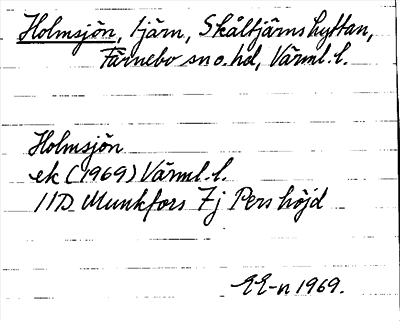 Holmsjön, tjärn, Skåltjärnshyttan,
Färnebo sn o. hd, Värml. l.
Holmsjön
ek (1969) Värml. l.
11D Munkfors 7j Pershöjd
EE-n 1969.